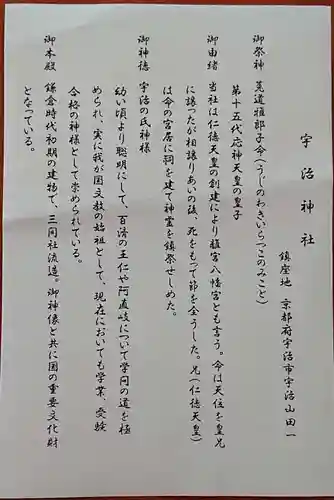 宇治神社
鎮座地 京都府宇治市宇治山田一
御祭神 莵道稚郎子命(うじのわきいらつこのみこと)
第十五代応神天皇の皇子
御由緒 当社は仁徳天皇の創建により離宮八幡宮とも言う。命は天位を皇兄
に譲ったが相譲りあいの後、死をもって節を全うした。兄(仁徳天皇)
は命の宮居に祠を建て神霊を鎮祭せしめた。
御神徳 宇治の氏神様
幼い頃より聡明にして、百済の王仁や阿直岐について学問の道を極
められ、実に我が国文教の始祖として、現在においても学業、受験
合格の神様として崇められている。
御本殿 鎌倉時代初期の建物で、三間社流造。御神像と共に国の重要文化財
となっている。